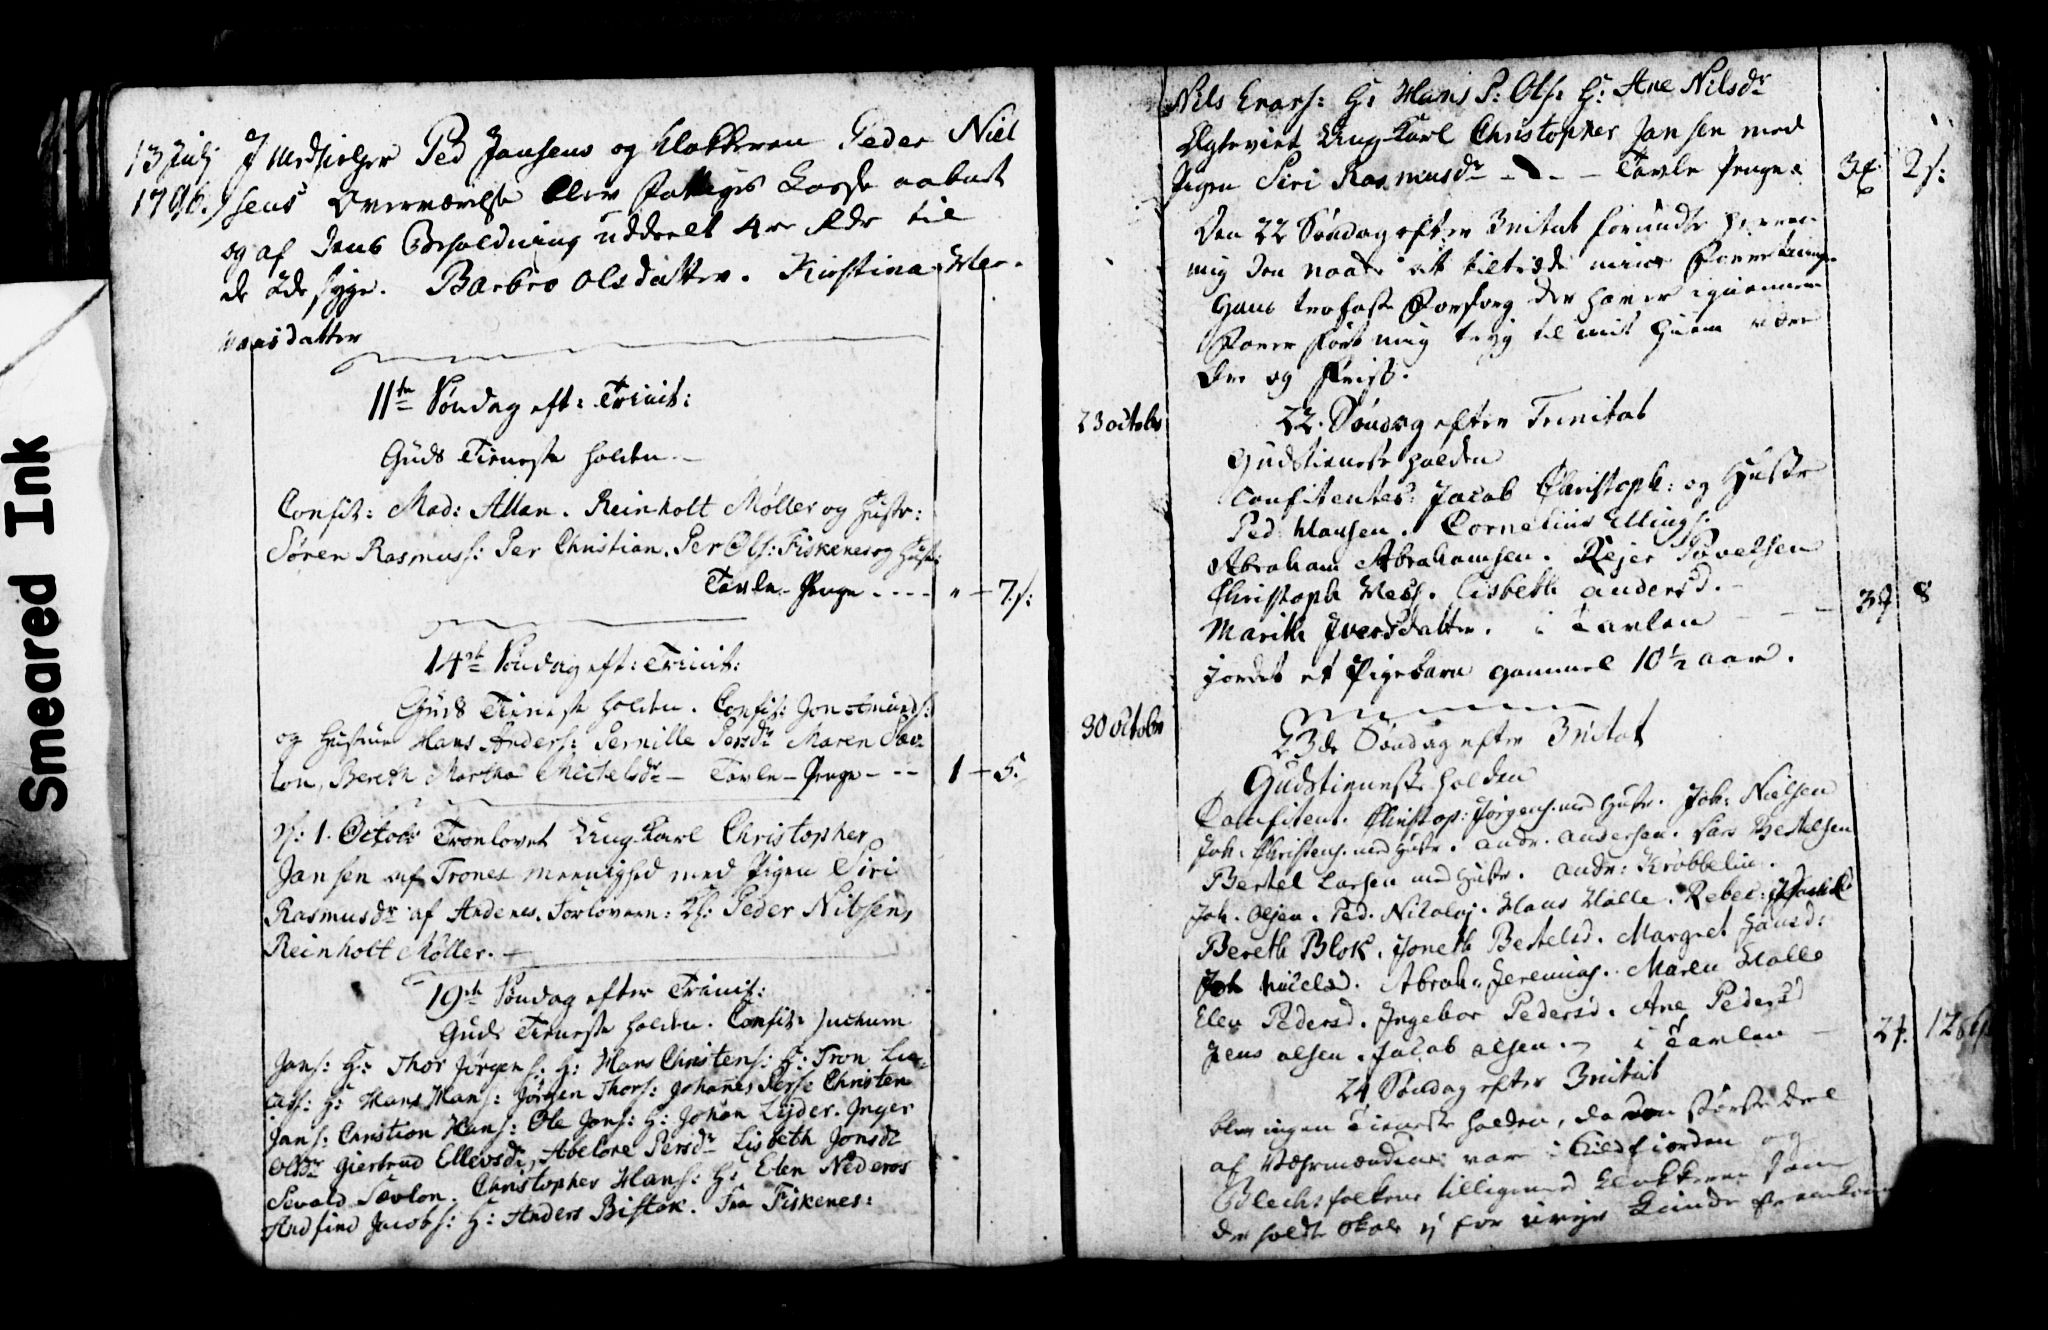 Smeared Ink
13 Julj J Medhielper Ped Jansens og Klokkeren Peder Niel
1796. sens Overværelse blev Fattiges Casse aabnet
og af dens Beholdning uddeelt 4re Rdr til
de 2de syge. Barbro Olsdatter. Kirstina Mor-
tensdatter
11te Søndag eft: Trinit:
Guds Tieneste holden.
Confit: Mad: Allan. Reinholt Møller og Hustr:
Søren Rasmuss: Per Christian. Per Ols: Fiskenes og Hust:
Tavle-Penge - - - - " - 7 s:
14de Søndag eft: Trinit:
Guds Tieneste holden. Confit: Jon
og Hustrue Hans Anders: Pernille Persdr Maren Sæv-
lon, Bereth Martha Michelsdr - Tavle-Penge - - - 1 - 5.
D: 1. Octobr Trolovet Ung Karl Christopher
Jansen af Trones Meenighed med Pigen Siri
Rasmusdr af Andenes. Forlovere: Peder Nilsen,
Reinholt Møller. -
19de Søndag efter Trinit:
Guds Tieneste holden. Confit: Juchum
Jans: H: Thor Jørgens: H: Hans Christens: H: Tron Lu-
cas: H: Hans Hans: Jørgen Thors: Johanes Perse Christen
Jans: Christion Hans: Ole Jons: H: Johan Lyder. Inger
Olsdr Giertrud Ellevsdr, Abelone Persdr Lisbeth Jonsdr
Sevald Sævlon. Christopher Hans: H: Elen Nederos
Andfind Jacobs: H: Anders Bistok. Fra Fiskenes:
Nils Enars: H: Hans P: Ols: H: Ane Nilsdr
Egteviet Ung Karl Christopher Jansen med
Pigen Siri Rasmusdr - - - Tavle Penge: 3 2 s:
Den 22 Søndag efter Trinitat forundte Herren
mig den naade at tiltræde min Forretning.
Hans trofaste Forsorg der haver igiennem
Farer ført mig tryg til mit Hiem være
Ære og Priis.
23 octobr 22. Søndag efter Trinitat
Gudstieneste holden
Confitentes: Jacob Christoph: og Hustr
Ped: Hansen. Cornelius Ellings:
Abraham Abrahamsen. Rejer Povelsen
Christoph Lisbeth Andersd. -
Marith Iversdatter. i Tavlen - - 3 8
Jordet et Pigebarn gammel 10 1/2 aar.
30 octobr 23de Søndag efter Trinitat
Gudstieneste holden
Confitent. Christop: Jørgens. med Hustr. Joh: Nielsen
Joh: Christens. med Hustr. Andr. Andersen. Lars Bertelsen
Bertel Larsen med Hustr. Andr: Krøbbelin.
Joh. Olsen. Ped. Nikolaj. Hans Halle. Rebek:
Bereth Blok. Joneth Bertelsd. Margret Hansd:
Joh Abrah: Jeremias. Maren Halle
Elen Pedersd. Ingebor Pedersd. Ane Pedersd
Jens Olsen. Jacob Olsen. - i Tavlen - 2 12
24 Søndag efter Trinitat
blev ingen Tieneste holden, da den største Deel
af var i Gildfiorden og
folkene tilligemed Klokkeren som
der holdt Skole ej for Vinde fremkom